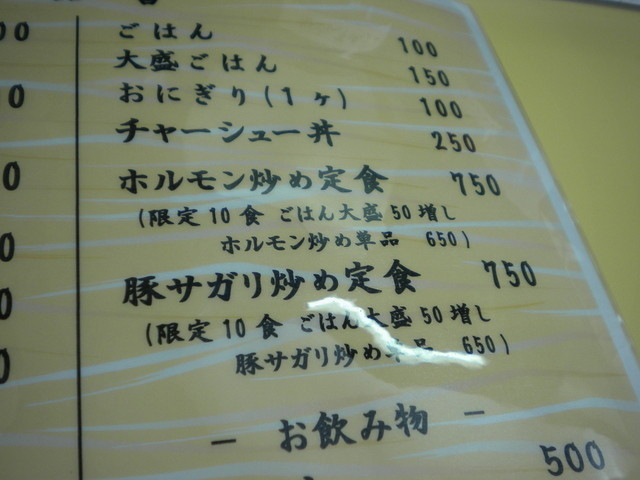 ごはん 100
大盛ごはん 150
おにぎり(1ヶ) 100
チャーシュー丼 250
ホルモン炒め定食 750
(限定10食 ごはん大盛50増し
ホルモン炒め単品 650)
豚サガリ炒め定食 750
(限定10食 ごはん大盛50増し
豚サガリ炒め単品 650)
– お飲み物 –
500